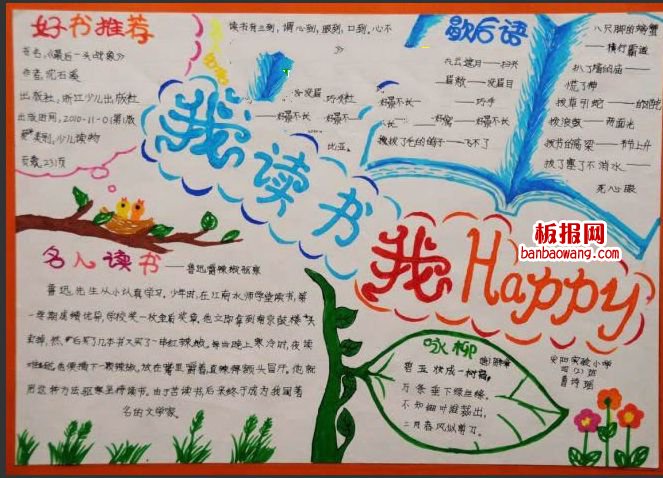 好书推荐
书名:《最后一头战象》
作者:沈石溪
出版社:浙江少儿出版社
出版时间:2010-11-01第1版
类别:少儿读物
页数:231页
读书有三到,谓心到,眼到,口到。心不
歇后语
八只脚的螃蟹
——横行霸道
扒了墙的庙——
慌了神
拔草引蛇——
拨浪鼓——两面光
拔节的高粱——节节上升
拔了塞子不淌水——
死心眼
拔了毛的鸽子——飞不了
我读书
我Happy
板报网
banbaowang.com
名人读书
——鲁迅嚼辣椒驱寒
鲁迅先生从小认真学习。少年时,在江南水师学堂读书,第
一学期成绩优异,学校奖一枚金质奖章。他立即拿到南京鼓楼
卖掉,然后买了几本书,又买了一串红辣椒。每当晚上寒冷时,夜读
难耐,他便摘下一颗辣椒,放在嘴里嚼着,直辣得额头冒汗。他就
用这种方法驱寒坚持读书。由于苦读书后来终于成为我国著
名的文学家。
咏柳
碧玉妆成一树高,
万条垂下绿丝绦。
不知细叶谁裁出,
二月春风似剪刀。
安阳实验小学